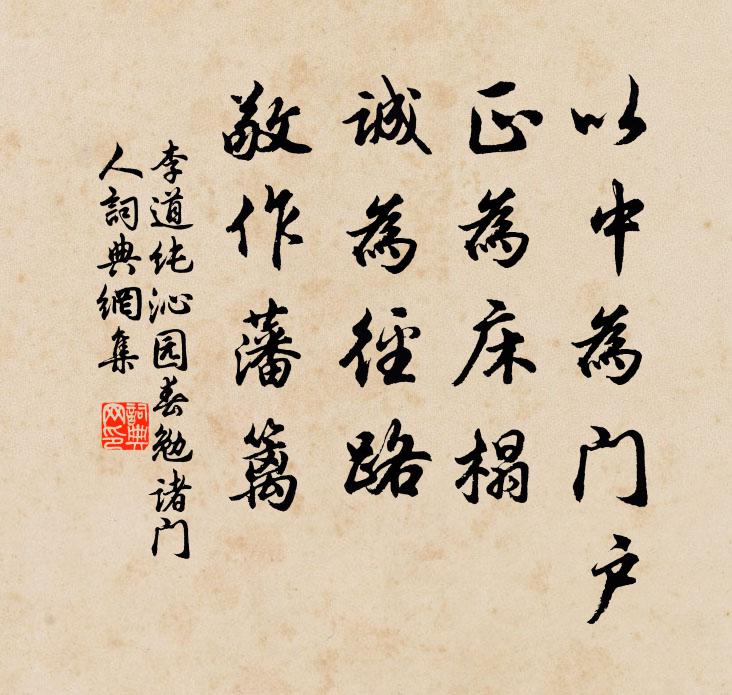 以中為门户
正為床榻
诚為徑路
敬作藩篱
李道纯沁园春勉诸门
人詞典網集
詞典
网印